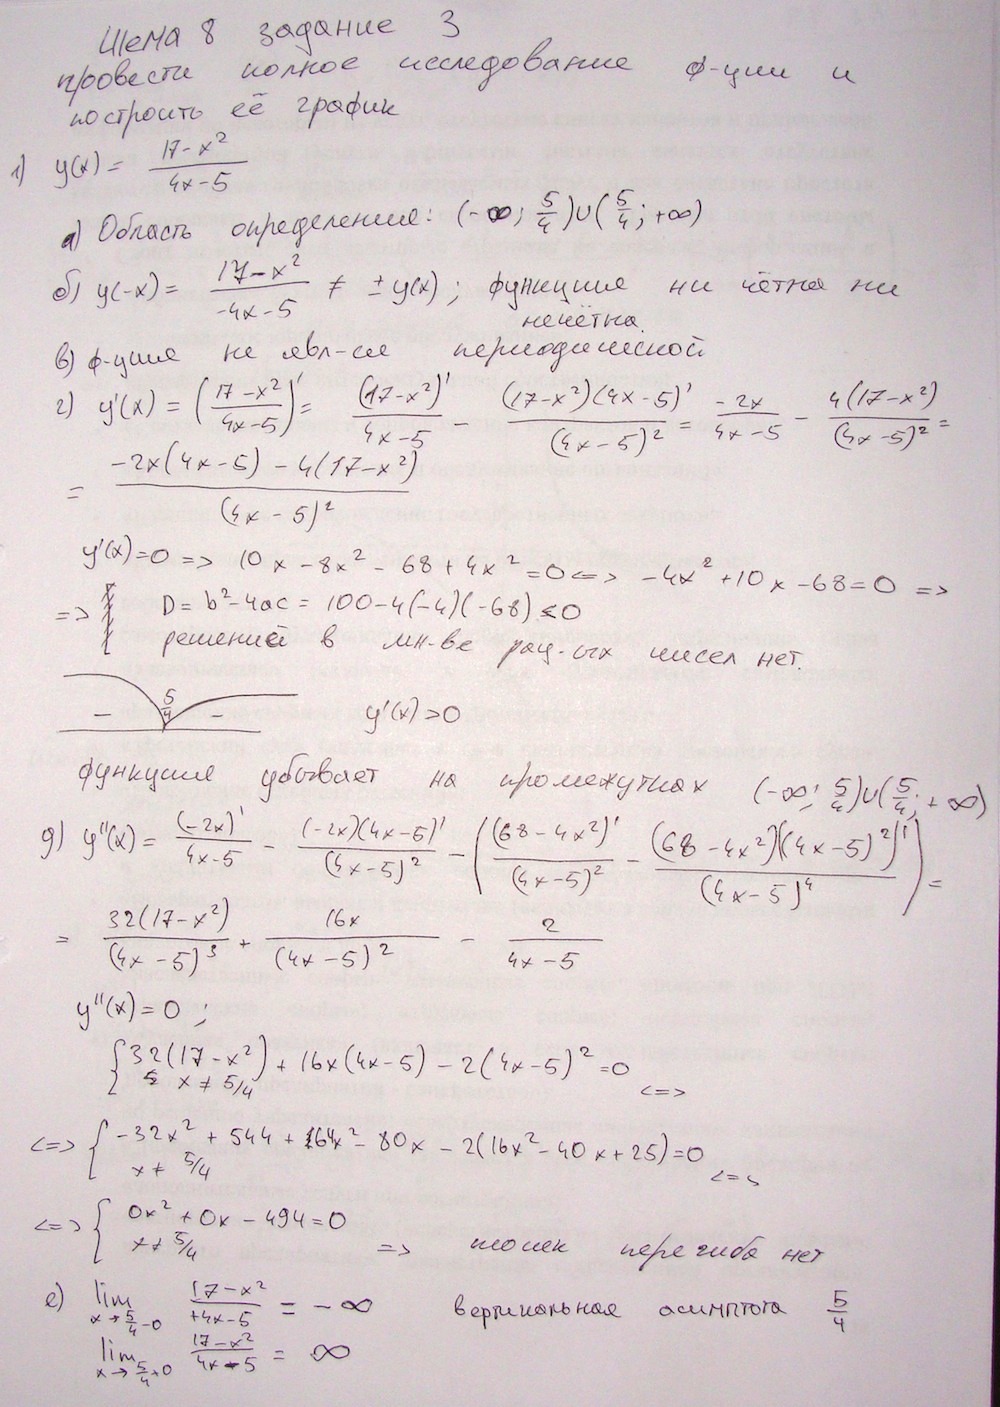 Тема 8 задание 3
провести полное исследование ф-ции и
построить её график
1) y(x) = (17-x²)/(4x-5)
а) Область определения: (-∞; 5/4)∪(5/4; +∞)
б) y(-x) = (17-x²)/(-4x-5) ≠ ±y(x); функция ни чётна ни
нечётна.
в) ф-ция не явл-ся периодической
г) y'(x) = ((17-x²)/(4x-5))' = (17-x²)'/(4x-5) - (17-x²)(4x-5)'/(4x-5)² = -2x/(4x-5) - 4(17-x²)/(4x-5)² =
= (-2x(4x-5) - 4(17-x²))/(4x-5)²
y'(x)=0 => 10x - 8x² - 68 + 4x² = 0 <=> -4x² + 10x - 68 = 0 =>
=> D = b²-4ac = 100-4(-4)(-68) < 0
решений в мн-ве рац-ых чисел нет.
- 5/4 - y'(x)>0
функция убывает на промежутках (-∞; 5/4)∪(5/4; +∞)
д) y''(x) = (-2x)'/(4x-5) - (-2x)(4x-5)'/(4x-5)² - ((68-4x²)'/(4x-5)² - (68-4x²)((4x-5)²)'/(4x-5)⁴) =
= 32(17-x²)/(4x-5)³ + 16x/(4x-5)² - 2/(4x-5)
y''(x) = 0;
{ 32(17-x²) + 16x(4x-5) - 2(4x-5)² = 0
x ≠ 5/4 <=>
<=> { -32x² + 544 + 64x² - 80x - 2(16x² - 40x + 25) = 0
x ≠ 5/4 <=>
<=> { 0x² + 0x - 494 = 0
x ≠ 5/4 => точек перегиба нет
е) lim x→5/4-0 (17-x²)/(+4x-5) = -∞ вертикальная асимптота 5/4
lim x→5/4+0 (17-x²)/(4x-5) = ∞